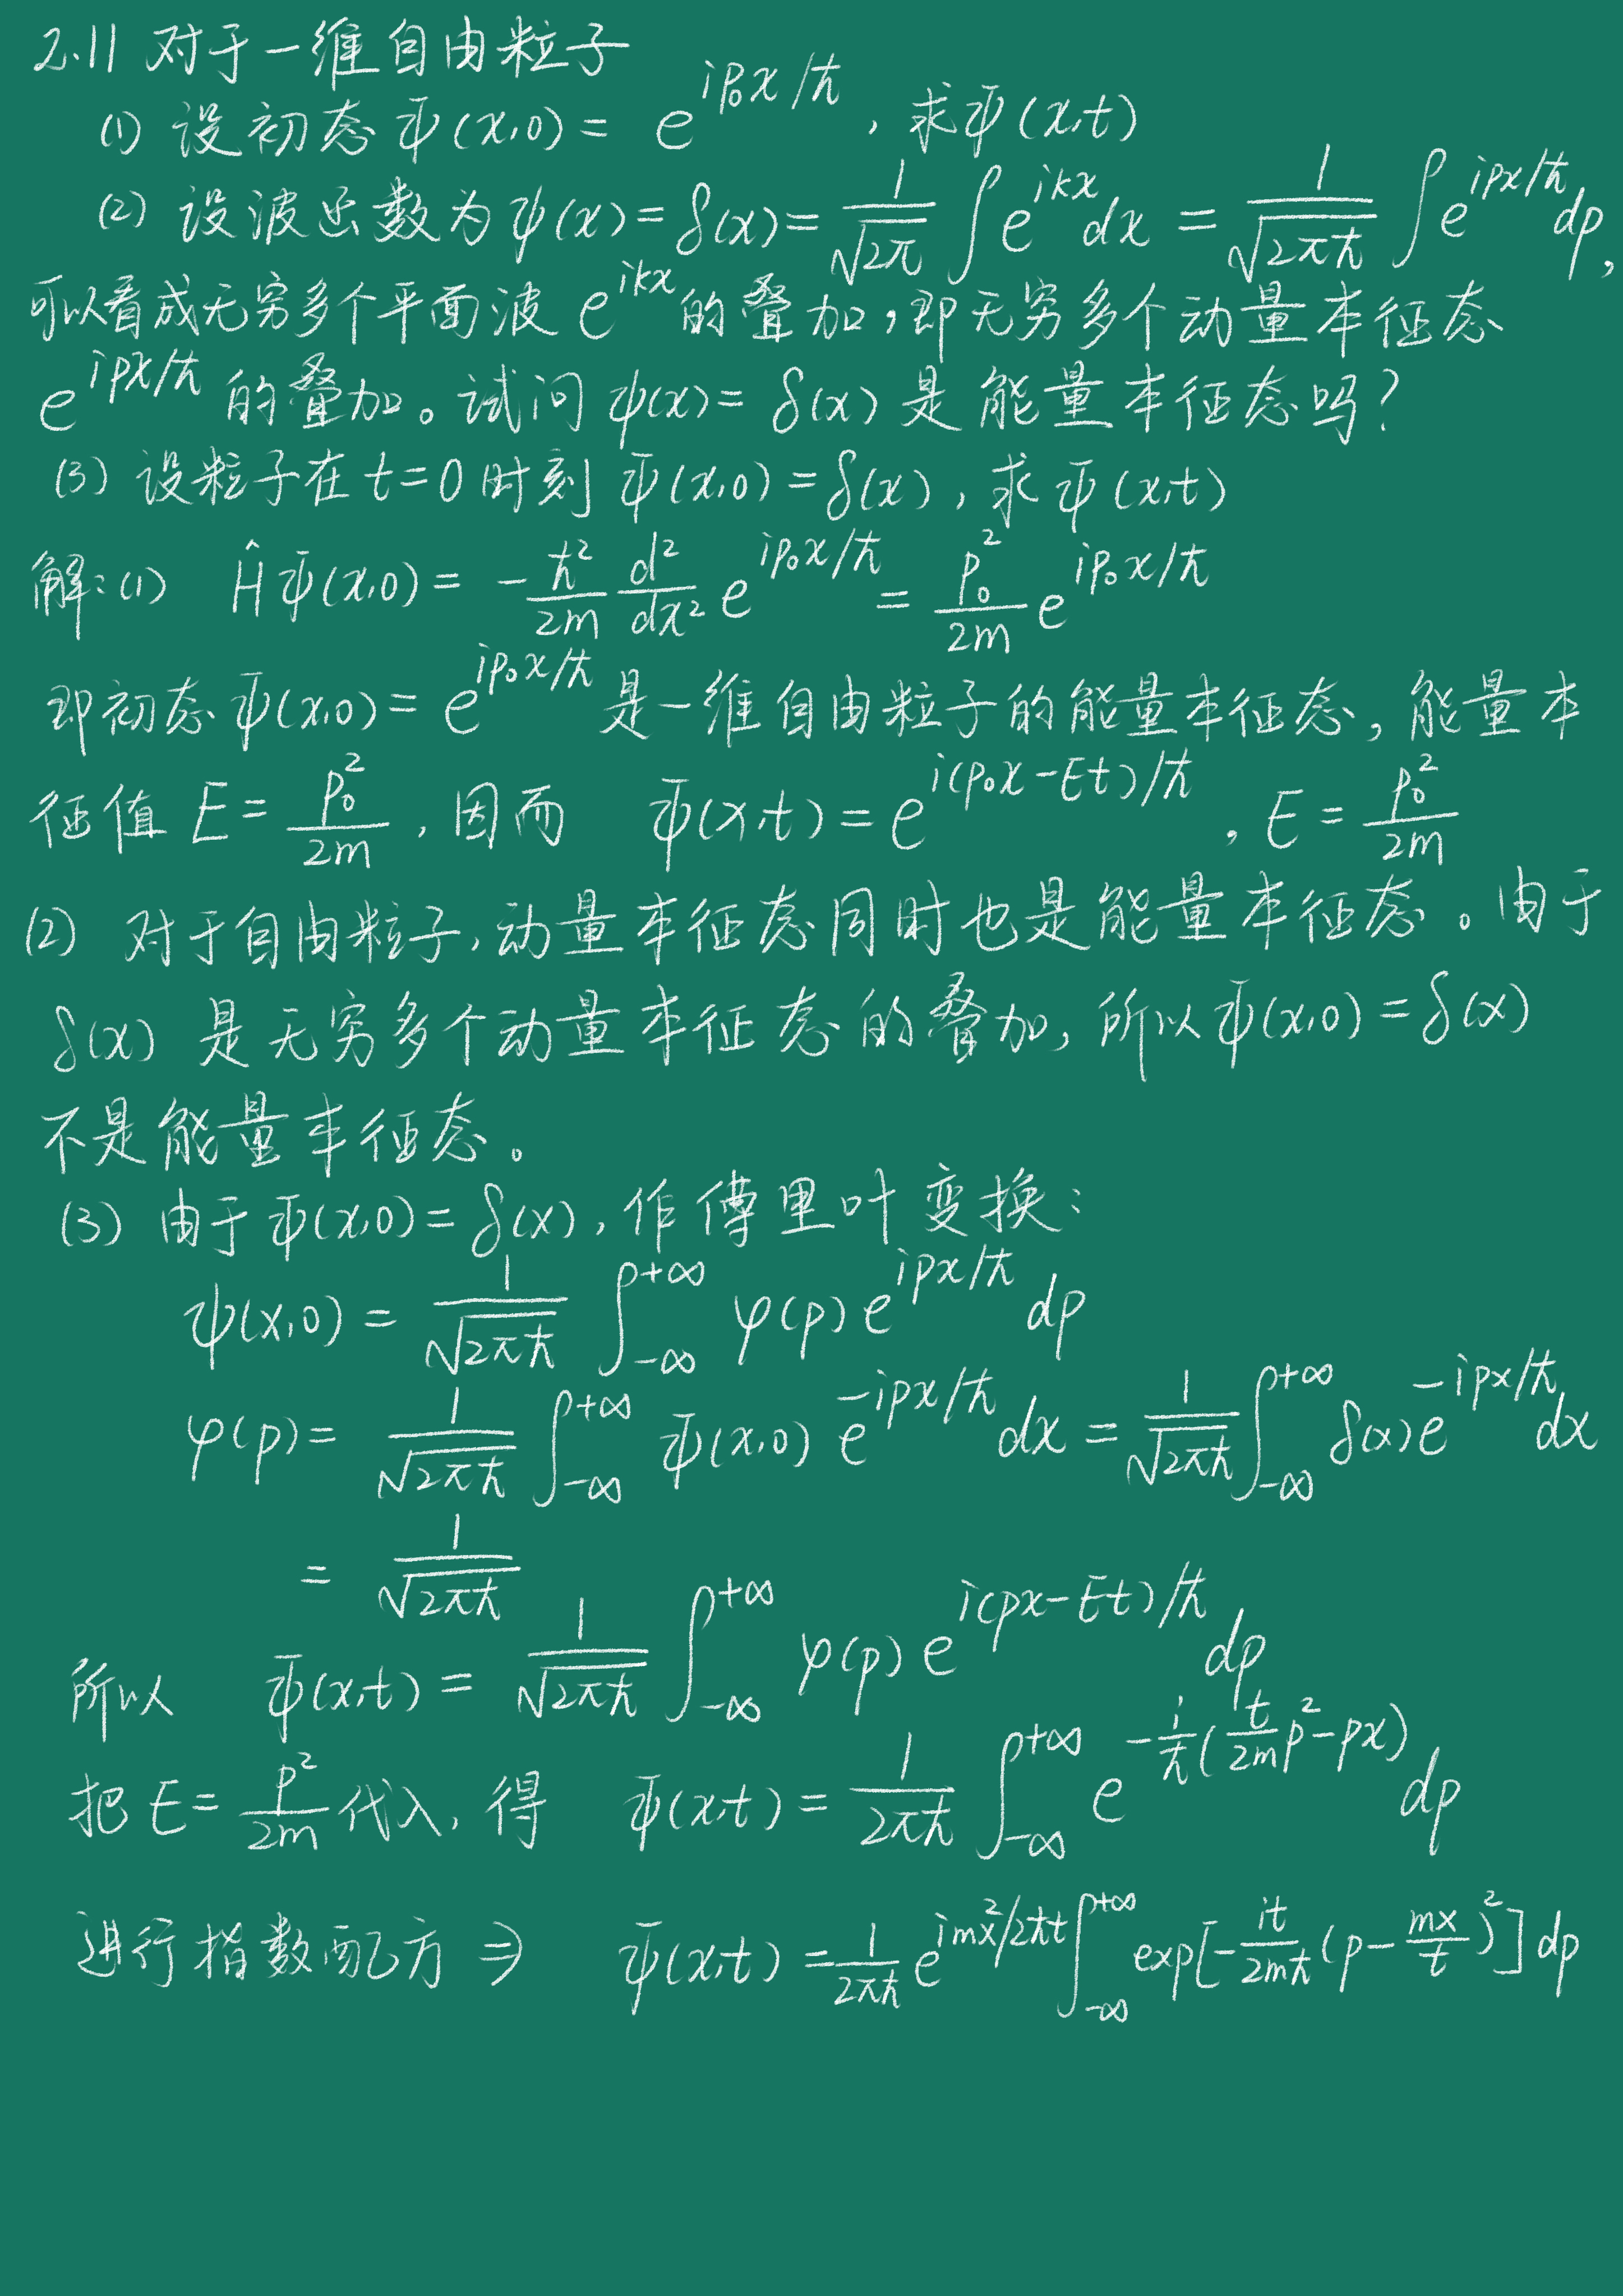 2.11 对于一维自由粒子
(1) 设初态 Ψ(x,0) = e^{ip₀x/ħ}, 求Ψ(x,t)
(2) 设波函数为 ψ(x) = δ(x) = \frac{1}{\sqrt{2π}} ∫ e^{ikx} dx = \frac{1}{\sqrt{2πħ}} ∫ e^{ipx/ħ} dp,
可以看成无穷多个平面波 e^{ikx} 的叠加,即无穷多个动量本征态
e^{ipx/ħ} 的叠加。试问 ψ(x) = δ(x) 是能量本征态吗?
(3) 设粒子在 t=0 时刻 Ψ(x,0) = δ(x), 求 Ψ(x,t)
解:(1) ĤΨ(x,0) = -\frac{ħ²}{2m} \frac{d²}{dx²} e^{ip₀x/ħ} = \frac{p₀²}{2m} e^{ip₀x/ħ}
即初态 Ψ(x,0) = e^{ip₀x/ħ} 是一维自由粒子的能量本征态, 能量本
征值 E = \frac{p₀²}{2m}, 因而 Ψ(x,t) = e^{i(p₀x-Et)/ħ}, E = \frac{p₀²}{2m}
(2) 对于自由粒子, 动量本征态同时也是能量本征态。由于
δ(x) 是无穷多个动量本征态的叠加, 所以 Ψ(x,0) = δ(x)
不是能量本征态。
(3) 由于 Ψ(x,0) = δ(x), 作傅里叶变换:
ψ(x,0) = \frac{1}{\sqrt{2πħ}} ∫_{-∞}^{+∞} φ(p) e^{ipx/ħ} dp
φ(p) = \frac{1}{\sqrt{2πħ}} ∫_{-∞}^{+∞} Ψ(x,0) e^{-ipx/ħ} dx = \frac{1}{\sqrt{2πħ}} ∫_{-∞}^{+∞} δ(x) e^{-ipx/ħ} dx
= \frac{1}{\sqrt{2πħ}}
所以 Ψ(x,t) = \frac{1}{\sqrt{2πħ}} ∫_{-∞}^{+∞} φ(p) e^{i(px-Et)/ħ} dp
把 E = \frac{p²}{2m} 代入, 得 Ψ(x,t) = \frac{1}{2πħ} ∫_{-∞}^{+∞} e^{-\frac{i}{ħ}(\frac{t}{2m}p²-px)} dp
进行指数配方 ⇒ Ψ(x,t) = \frac{1}{2πħ} e^{imx²/2ħt} ∫_{-∞}^{+∞} exp[-\frac{it}{2mħ}(p-\frac{mx}{t})²] dp